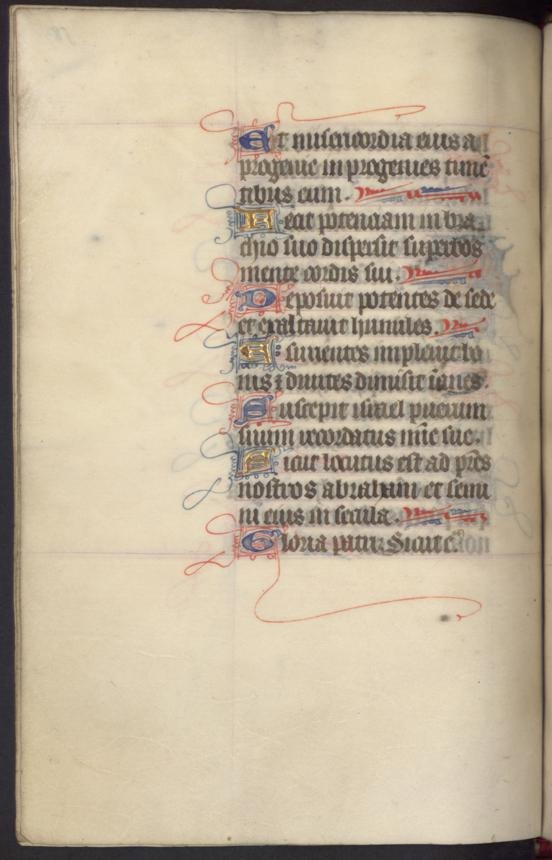 Et misericordia eius a
progenie in progenies timē
tibus eum.
Fecit potenciam in bra
chio suo dispersit superbos
mente cordis sui.
Deposuit potentes de sede
et exaltauit humiles.
Esurientes impleuit bo
nis ⁊ diuites dimisit inanes.
Suscepit israel puerum
suum recordatus mīe sue.
Sicut locutus est ad prēs
nostros abraham et semi
ni eius in secula.
Gloria patri Sicut e